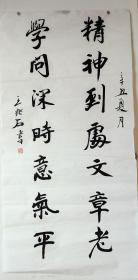 辛丑夏月
精神到處文章老
學問深時意氣平